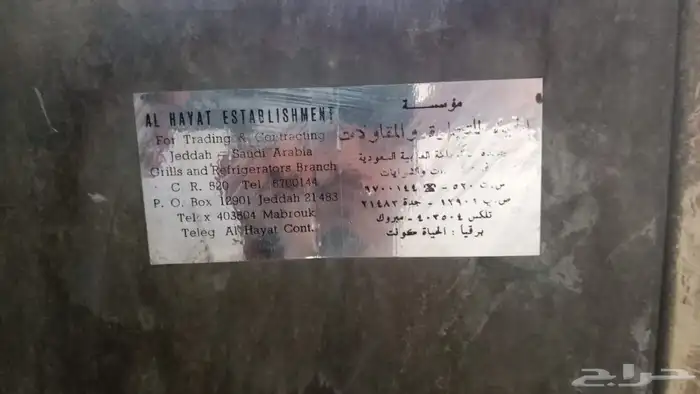 AL HAYAT ESTABLISHMENT
For Trading & Contracting
Jeddah - Saudi Arabia
Grills and Refrigerators Branch
C R. 520 Tel 6700144
P. O. Box 12901 Jeddah 21483
Telex 403504 Mabrouk
Teleg Al Hayat Cont.
مؤسسة
للتجارة والمقاولات
العربية السعودية
والشوايات
س.ت ٥٢٠ - ☎ ٦٧٠٠١٤٤
ص.ب ١٢٩٠١ - جدة ٢١٤٨٣
تلكس ٤٠٣٥٠٤ - مبروك
برقيا : الحياة كونت
حراج